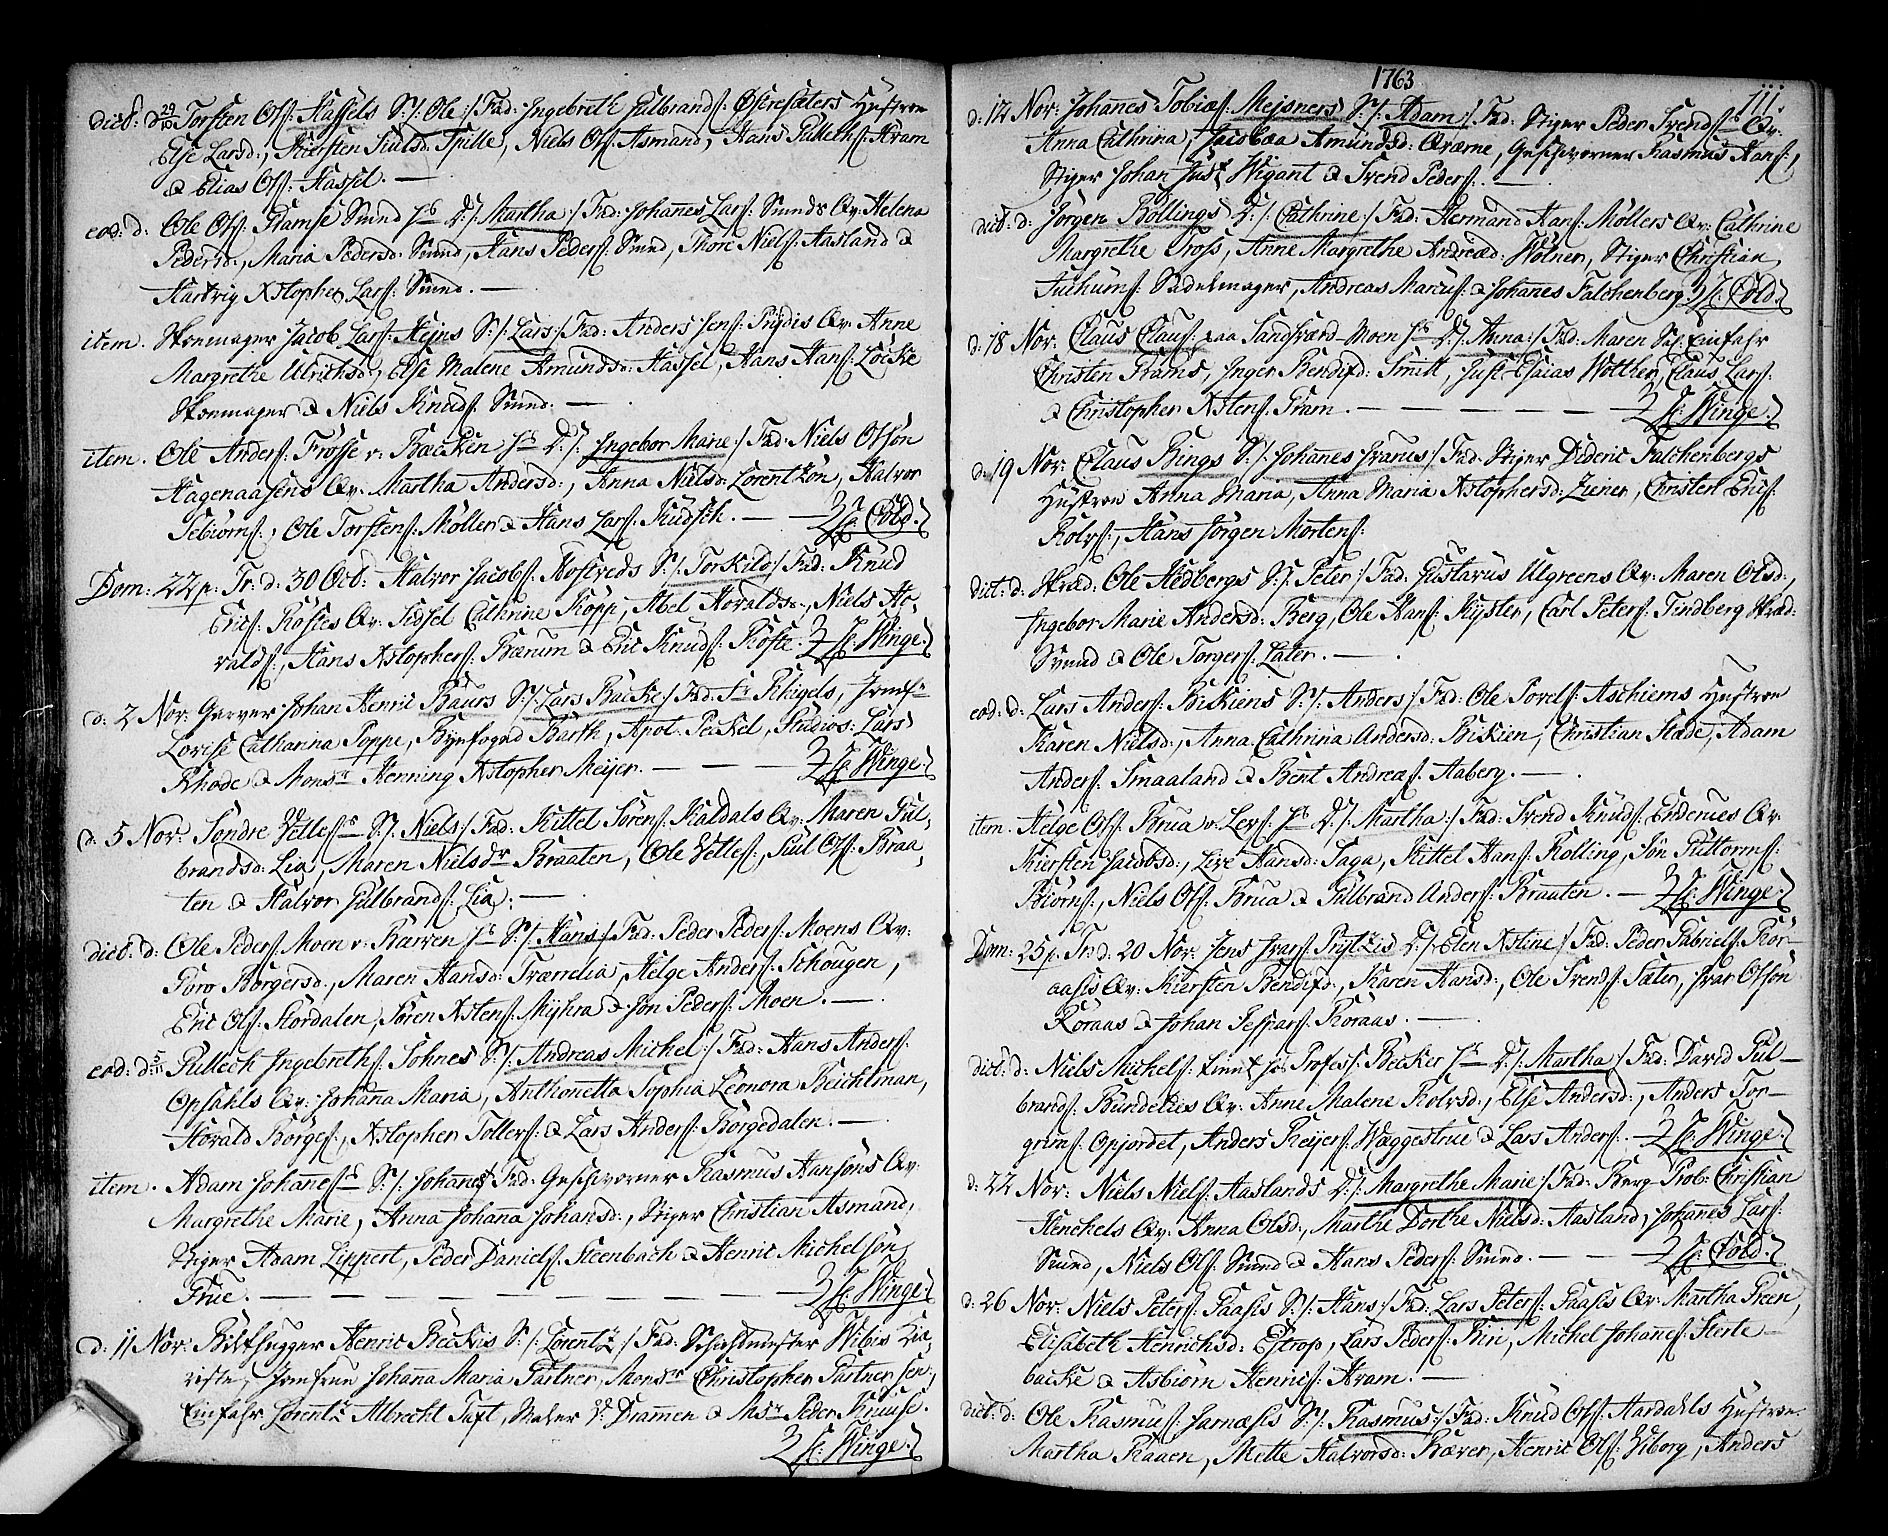 dict: d 29/10 Torsten Ols: Hassels S:/: Ole :/ Fad: Ingebreth Gulbrands: Østresæters Hustroe
Else Larsd:, Kiersten Juulsd: Spille, Niels Ols: Asmand, Hans Gulleths: Kram
& Elias Ols: Hassel. —
eod: d. Ole Ols: Ramse Smed D:/: Martha :/ Fad: Johannes Lars: Smeds Qv: Helena
Pedersd:, Maria Pedersd: Smed, Hans Peders: Smed, Thore Niels: Aasland &
Hartvig Xstopher Lars: Smed. —
item. Skomager Jacob Lars: Hejns S:/: Lars :/ Fad: Anders Jens: Prydis Qv: Anne
Margrethe Ulrichsd:, Else Malene Amundsd: Hassel, Hans Hans: Löcke
Skomager & Niels Knuds: Smed. —
item. Ole Anders: Frösse v: Backen D:/: Ingebor Marie :/ Fad: Niels Olsön
Hagenaasens Qv: Martha Andersd:, Anna Nielsd: Lorentzön, Halvor
Tebiörns:, Ole Torstens: Möller & Hans Lars: Kudsch. — H: Cold.
Dom: 22 p. Tr: d: 30 Oct: Halvor Jacobs: Hoftveds S:/: Torkild :/ Fad: Knud
Erics: Röstes Qv: Sidsel Cathrine Kopp, Abel Horalds:, Niels Ho-
ralds:, Hans Xstophers: Bærum & Eric Knuds: Röste. H: Winge.
d: 2 Nov: Garver Johan Henric Baurs S:/: Lars Backe :/ Fad: Fr Rhigels, Jomfr
Lovise Catharina Poppe, Bynfogad Barth, Apot. Peckel, Studios: Lars
Rhode & Monsr Henning Xstopher Meijer. — H: Winge.
d: 5 Nov: Söndre Vetles: S:/: Niels :/ Fad: Kittel Sörens: Kaldals Qv: Maren Gul-
brandsd: Lia, Maren Nielsdr Braaten, Ole Vetles:, Juul Ols: Braa-
ten & Halvor Gulbrands: Lia. —
dict: d: Ole Peders: Moen v: Barven S:/: Hans :/ Fad: Peder Peders: Moens Qv:
Goro Börgersd:, Maren Hansd: Trærrelia, Helge Anders: Schougen,
Eric Ols: Stordalen, Sören Xstens: Myhra & Jon Peders: Moen. —
eod: d: Gullech Ingebreths: Sohnes S:/: Andreas Michel :/ Fad: Hans Anders:
Opsahls Qv: Johanna Maria, Anthonetta Sophia Leonora Beichelman,
Horald Börges:, Xstopher Tollers: & Lars Anders: Borgedalen. —
item. Adam Johanes: S:/: Johanes :/ Fad: Geschworner Rasmus Hansöns Qv:
Margrethe Marie, Anna Johanna Johansd:, Stiger Christian Asmand,
Stiger Adam Lippert, Peder Daniels: Steenbach & Henric Michelsön
True. — H: Winge.
d: 11 Nov: Bilthugger Henric Beckis S:/: Lorentz :/ Fad: Schichtmester Wibis Lia-
riste, Jomfrue Johana Maria Tartner, Monsr Christopher Tartner sen:,
Einfahr Lorentz Albrecht Taft, Maler Drammen & Msr Peder Kruuse.
H: Winge.
1763
111.
d: 12 Nov: Johannes Tobias: Mejsners S:/: Adam :/ Fad: Stiger Peder Svends: Qv:
Anna Cathrina, Jacobæa Amundsd: Qværne, Geschworner Rasmus Hans:,
Stiger Johan Just Wigant & Svend Peders: —
dict: d: Jörgen Bollings D:/: Cathrine :/ Fad: Hermand Hans: Möllers Qv: Cathrine
Margrethe Tross, Anne Margrethe Andreæd: Wölner, Stiger Christian
Juchums: Sadelmager, Andreas Marcus: & Johanes Falchenberg. H: Cold.
d: 18 Nov: Claus Claus: paa Sandsværd-Moen D:/: Anna :/ Fad: Maren Einfahr
Christen Trams, Inger Bendixd: Smitt, Just Esaias Wölther, Claus Lars:
& Christopher Xstens: Tram. — H: Winge.
d: 19 Nov: Claus Bings S:/: Johanes Franus :/ Fad: Stiger Dideric Falchenbergs
Hustroe Anna Maria, Anna Maria Xstophersd: Ziener, Christen Erics:
Rolvs:, Hans Jörgen Mortens:
dict: d: Skræd: Ole Hedbergs S:/: Peter :/ Fad: Gustavus Ulgreens Qv: Maren Olsd:,
Ingebor Marie Andersd: Berg, Ole Hans: Kyster, Carl Peters: Tindberg Skræd:
Svend & Ole Torgers: Sater. —
eod: d: Lars Anders: Bikiens S:/: Anders :/ Fad: Ole Povels: Aschiems Hustroe
Karen Nielsd:, Anna Cathrina Andersd: Bikien, Christian Stade, Adam
Anders: Smaaland & Bent Andreas: Aaberg. —
item. Helge Ols: Brua v: Levs: D:/: Martha :/ Fad: Svend Knuds: Enderues Qv:
Kiersten Jacobsd:, Live Hansd: Saga, Kittel Hans: Kolling, Jön Guttorms:
Biörns:, Niels Ols: Brua & Gulbrand Anders: Braaten. — H: Winge.
Dom: 25 p. Tr: d: 20 Nov: Jens Ivars: Prytzis D:/: Elen Xstine :/ Fad: Peder Gabriels: Kor-
aasis Qv: Kiersten Bendixd:, Karen Hansd:, Ole Svends: Sæter, Ivar Olsön
Koraas & Johan Jespars: Koraas. —
dict: d: Niels Michels: Profess: Becker D:/: Martha :/ Fad: David Gul-
brands: Bundelies Qv: Anne Malene Rolvsd:, Else Andersd:, Anders Tor-
grims: Opjordet, Anders Reijers: Wæggestrue & Lars Anders: — H: Winge.
d: 22 Nov: Niels Niels: Aaslands D:/: Margrethe Marie :/ Fad: Berg Prob: Christian
Henckels Qv: Anna Olsd:, Marthe Dorthe Nielsd: Aasland, Johanes Lars:
Smed, Niels Ols: Smed & Hans Peders: Smed. — H: Cold.
d: 26 Nov: Niels Peters: Faasis S:/: Hans :/ Fad: Lars Peters: Faasis Qv: Martha Green,
Elisabeth Henrichsd: Estrop, Lars Peders: Bin, Michel Johanes: Sterte-
backe & Asbiörn Henrics: Kram. —
dict: d: Ole Rasmus: Jarnæsis S:/: Rasmus :/ Fad: Knud Ols: Aardahls Hustroe
Martha Raaen, Mette Halvorsd: Bæver, Henric Ols: Viborg, Anders